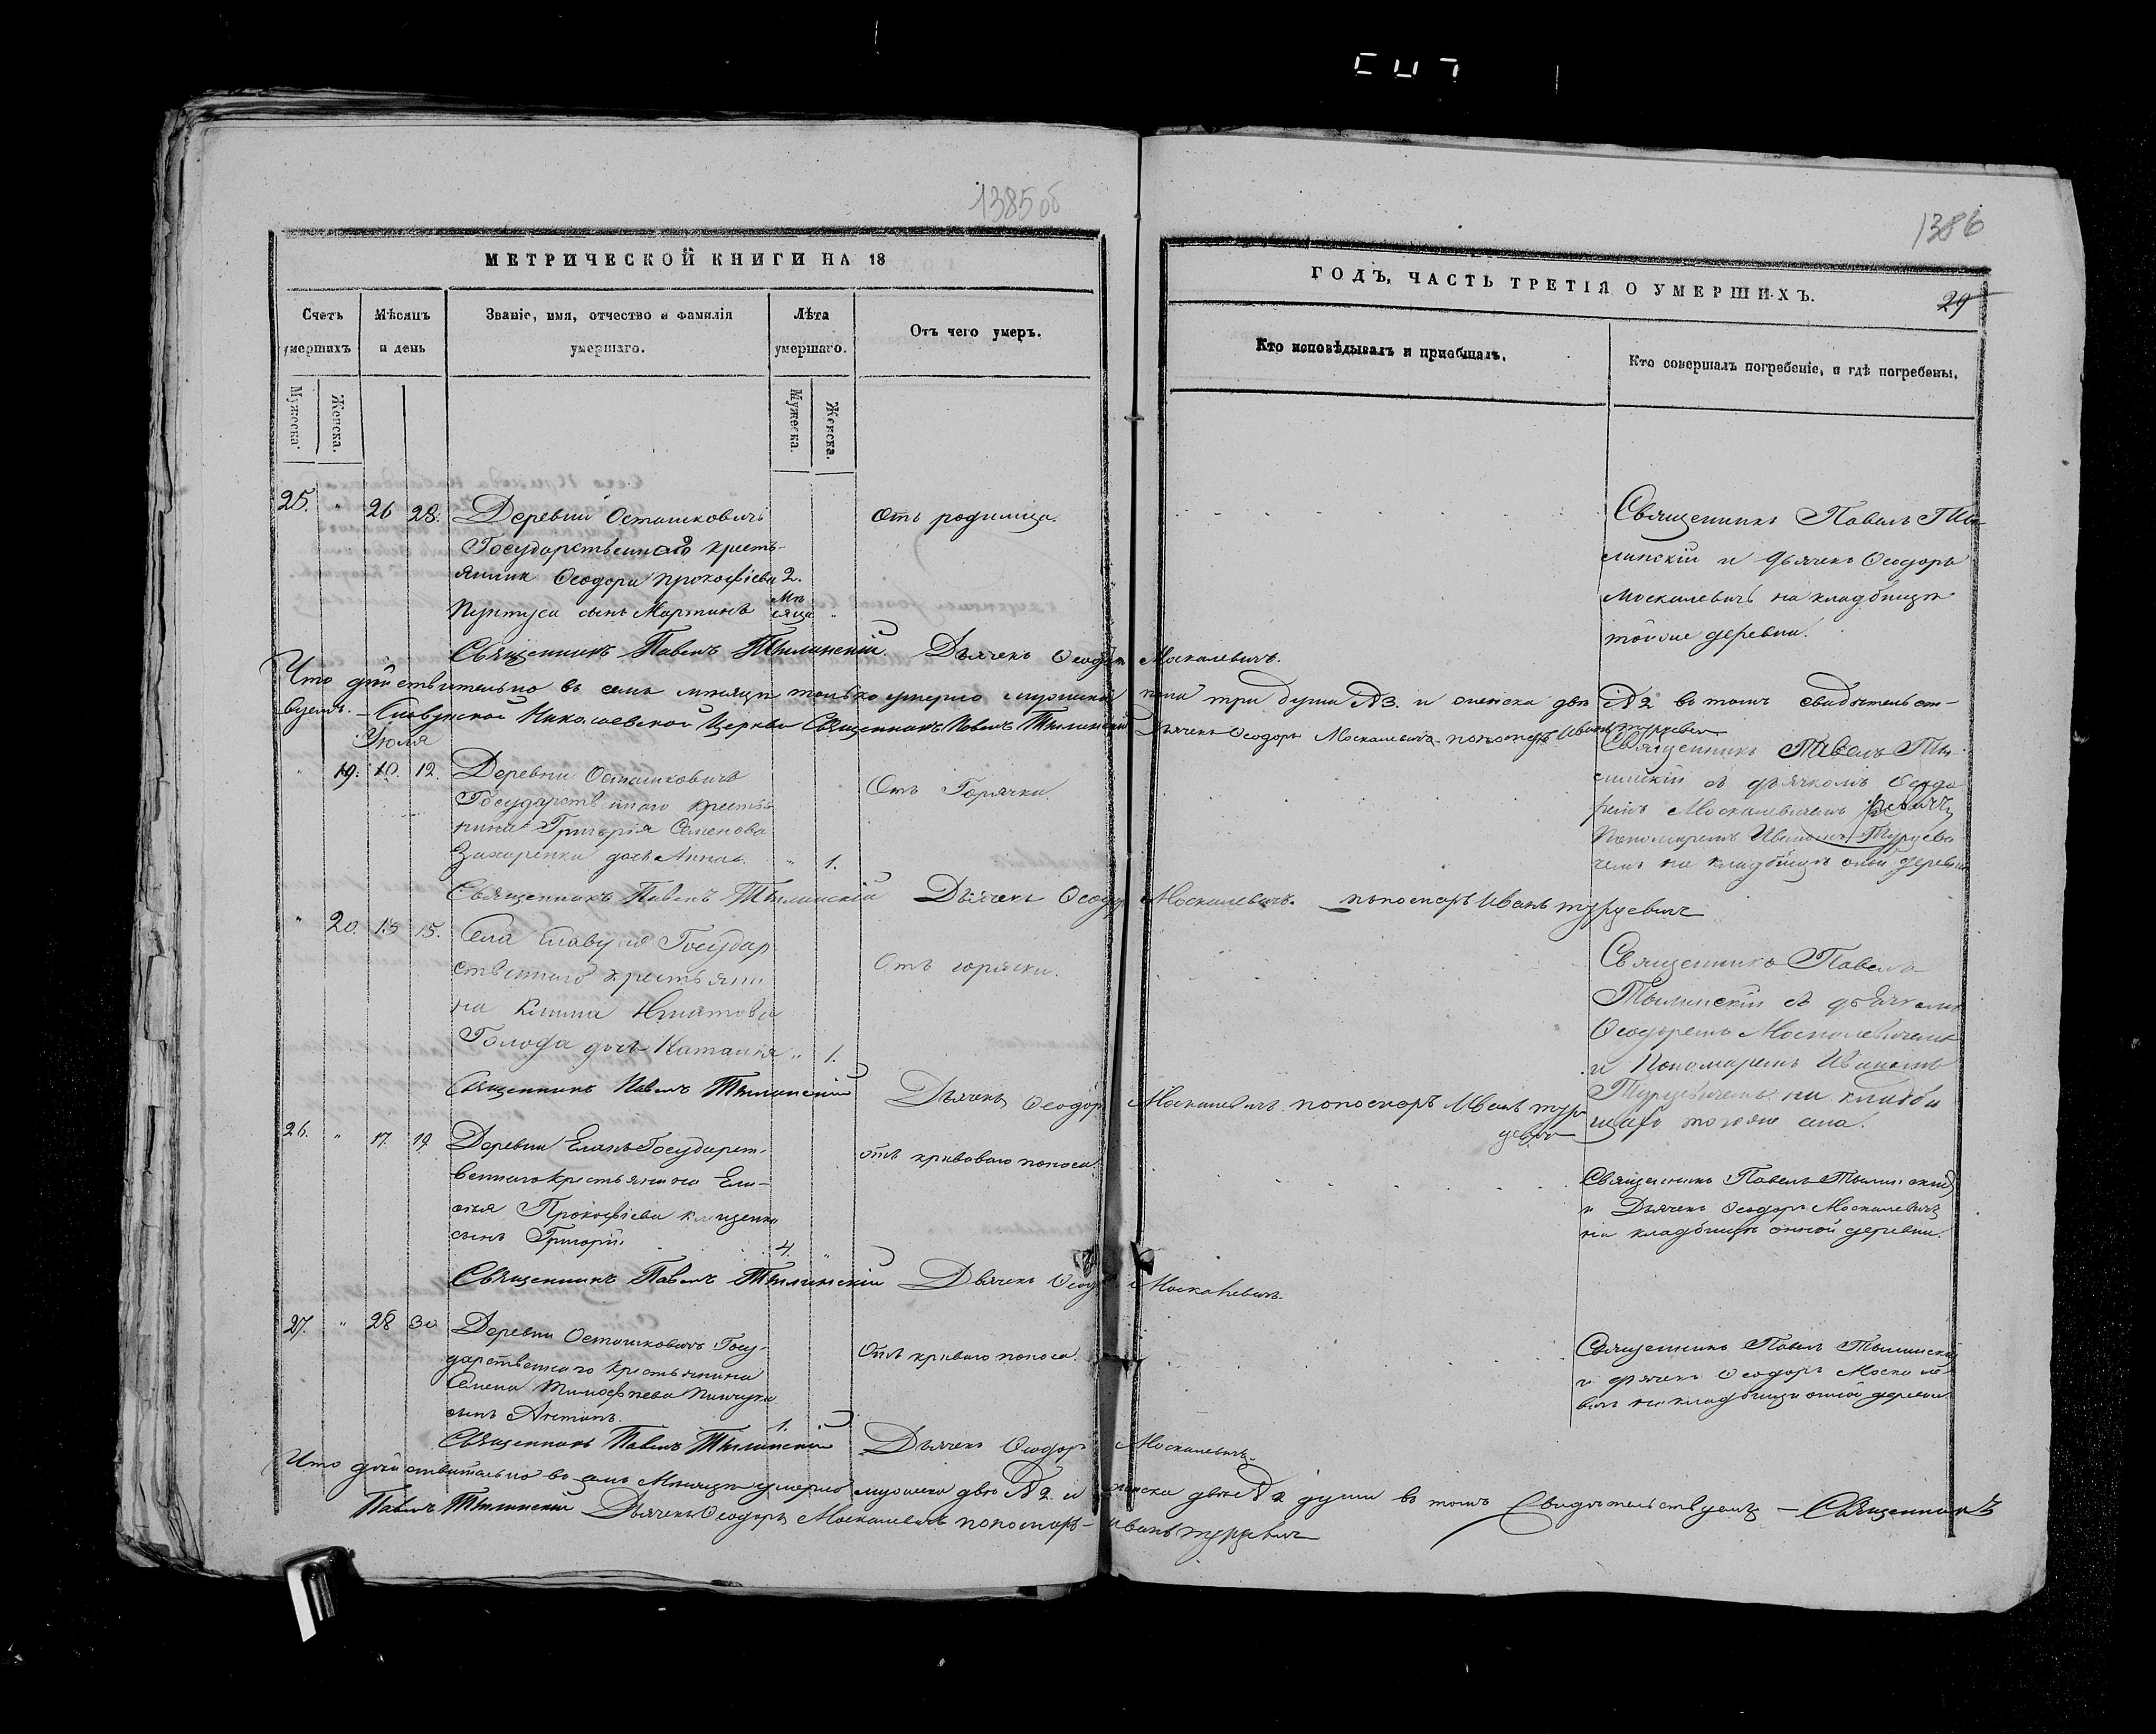 1385 об
1386
МЕТРИЧЕСКОЙ КНИГИ НА 18
ГОДЪ, ЧАСТЬ ТРЕТІЯ О УМЕРШИХЪ.
29
Счетъ умершихъ
Мѣсяцъ и день
Званіе, имя, отчество и фамилія умершаго.
Лѣта умершаго.
Отъ чего умеръ.
Кто исповѣдывалъ и пріобщалъ.
Кто совершалъ погребеніе, и гдѣ погребены.
Мужеска.
Женска.
Мужеска.
Женска.
25. " 26 28. Деревни Осташковичъ
Государственнаго кресть-
янина Ѳеодора Прокофіева 2.
Пунтуса сынъ Мартинъ Мѣ
сяца "
Отъ родимца.
Священникъ Павелъ Тыш-
линскій и дьячекъ Ѳеодоръ
Москалевичъ на кладбищѣ
тойже деревни.
Священникъ Павелъ Тылинскій Дьячекъ Ѳеодоръ Москалевичъ.
Что дѣйствительно въ семъ мѣсяцѣ только умерло мужеска пола три души №3. и женска двѣ №2 въ томъ свидѣтельст-
вуемъ. – Николаевской Церкви Священникъ Павелъ Тылинскій Дьячекъ Ѳеодоръ Москалевичъ пономарь Иванъ
Іюля
" 19. 10. 12. Деревни Осташковичъ
Государственнаго крестья
нина Григорія Семенова
Захаренка дочь Анна. " 1.
Отъ Горячки.
Священникъ Павелъ Ты-
линскій съ дьячкомъ Ѳеодо
ремъ Москалевичемъ
Пономаремъ Иваномъ Турцеви
чемъ на кладбищѣ оной деревни
Священникъ Павелъ Тылинскій Дьячекъ Ѳеодоръ Москалевичъ. пономарь Иванъ Турцевичъ
" 20. 13 15. Села Государ
ственнаго крестьяни
на Игнатова
Голода дочь Наталия " 1.
Отъ горячки.
Священникъ Павелъ
Тылинскій съ дьячкомъ
Ѳеодоремъ Москалевичемъ
и Пономаремъ Иваномъ
Турцевичемъ на кладби
щѣ тогоже села.
Священникъ Павелъ Тылинскій Дьячекъ Ѳеодоръ Москалевичъ пономарь Иванъ Тур
цевичъ
26. " 17. 19. Деревни Государст-
веннаго крестьянина Ели-
сѣя Прокофіева
сынъ Григорій. 4. "
отъ кроваваго поноса.
Священникъ Павелъ Тылинскій
и Дьячекъ Ѳеодоръ Москалевичъ
на кладбищѣ оной деревни.
Священникъ Павелъ Тылинскій Дьячекъ Ѳеодоръ Москалевичъ.
27. " 28 30 Деревни Осташковичъ Госу-
дарственнаго крестьянина
Семена Тимофеева Пинчука
сынъ 1.
Отъ криваго поноса.
Священникъ Павелъ Тылинскій
и дьячекъ Ѳеодоръ Москале
вичъ на кладбищѣ оной деревни
Священникъ Павелъ Тылинскій Дьячекъ Ѳеодоръ Москалевичъ.
Что дѣйствительно въ семъ Мѣсяцѣ умерло мужеска двѣ №2. и женска двѣ №2 души въ томъ Свидѣтельствуемъ – Священникъ
Павелъ Тылинскій Дьячекъ Ѳеодоръ Москалевичъ пономарь Иванъ Турцевичъ